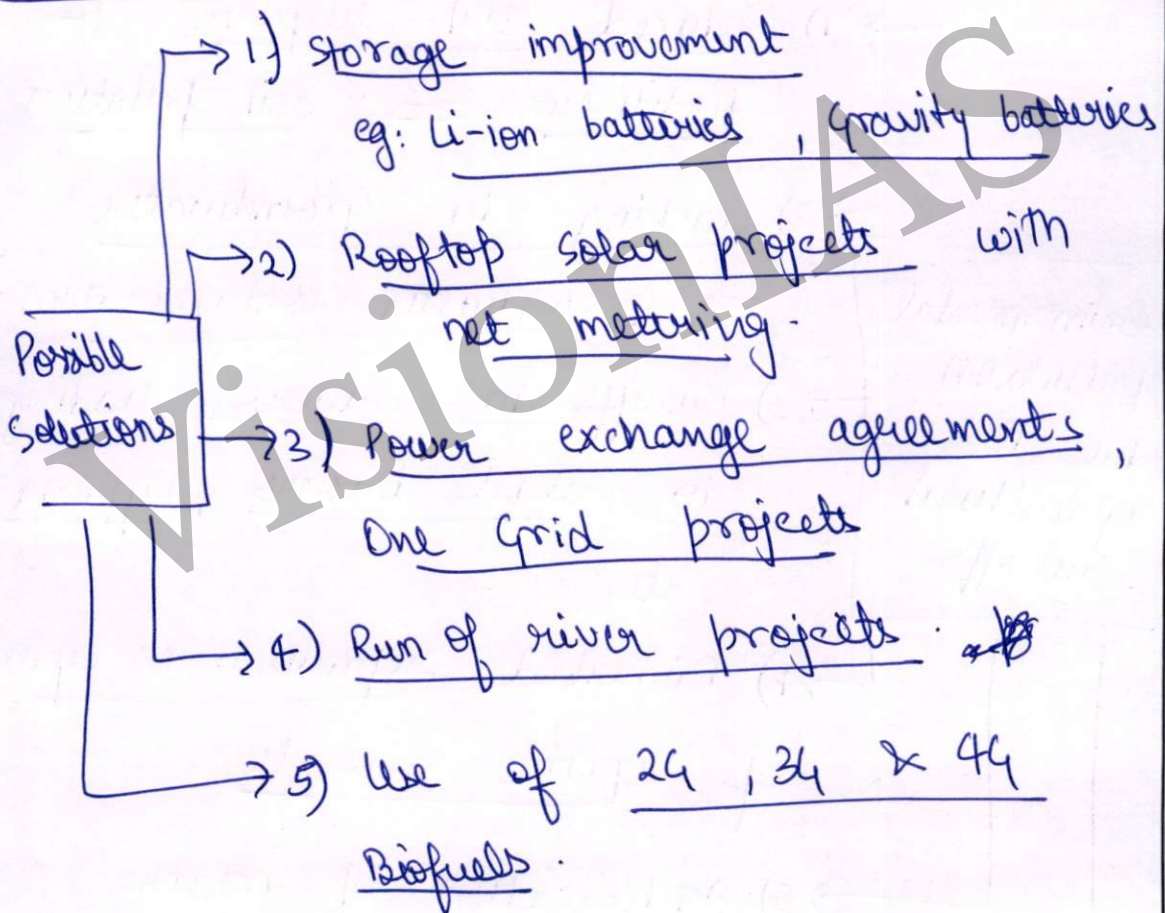 1) Storage improvement
eg: Li-ion batteries, Gravity batteries
2) Rooftop solar projects with
net metering.
Possible
solutions
3) Power exchange agreements,
One Grid projects
4) Run of river projects.
5) Use of 2G, 3G & 4G
Biofuels.
VisionIAS